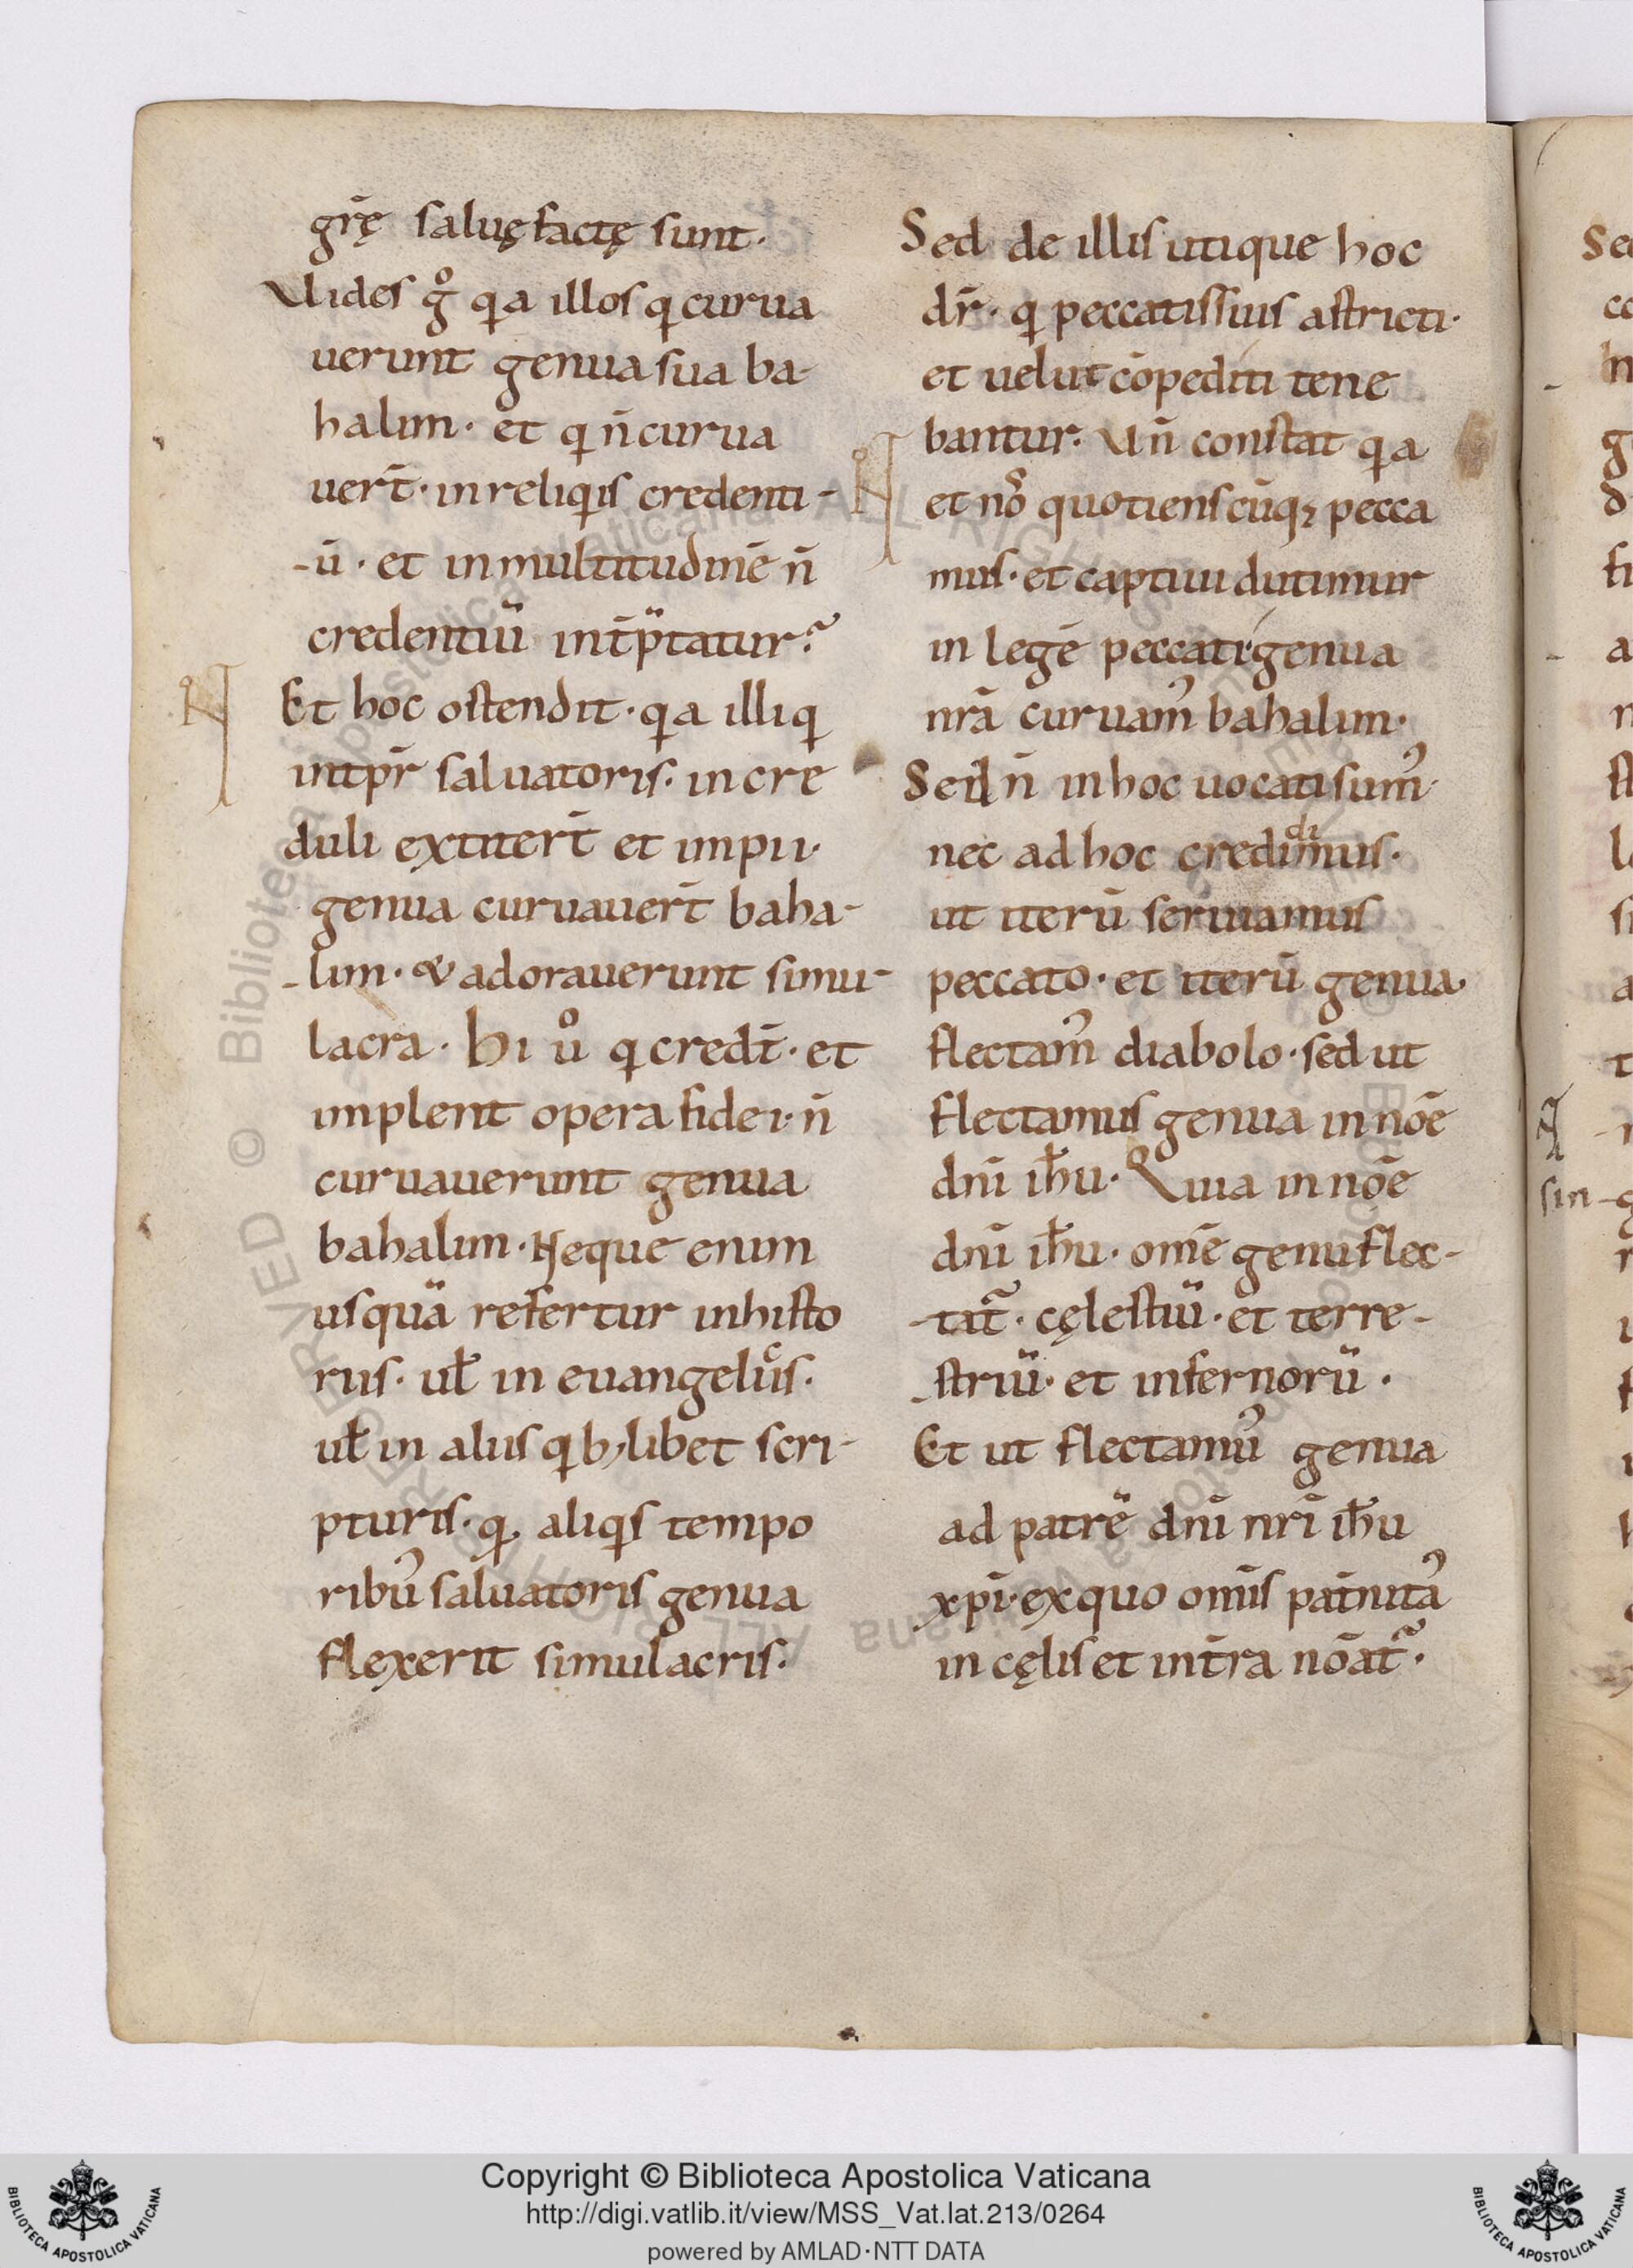 gr̄ę saluę factę sunt·
Vides g̊ qa illos q curua
uerunt genua sua ba-
halim· et q n̄ curua
uerт̄· in reliqis credenti-
-ū· et in multitudinē n̄
credentiū int̄p̄tatur?
Et hoc ostendit· qa illi q
intpr̄ saluatoris· incre
duli extiterт̄ et impii·
genua curuauerт̄ baha-
-lim· & adorauerunt simu-
lacra· Hi ů q credт̄· et
implent opera fidei· n̄
curuauerunt genua
bahalim· Neque enim
usquā refertur in histo
riis· ul̄ in euangeliis·
ul̄ in aliis qb; libet scri-
pturis· q aliqis tempo
ribu᾽ saluatoris genua
flexerit simulacris·
Sed de illis utique hoc
dr̄· q peccatis suis astricti·
et uelut cōpediti tene
bantur· Vn̄ constat qa
et nō quotienscūq; pecca
mus· et captiui dutimur
in legē peccati· genua
nrā curuam᾽ bahalim·
Sed n̄ in hoc uocati sum᾽·
nec ad hoc credimus·
di
ut iterū seruiamus
peccato· et iterū genua·
flectam᾽ diabolo· sed ut
flectamus genua in nōe
dnī ih̄u· Quia in nōe
dnī ih̄u· omē genu flec-
-tat̄· cęlestiū· et terre-
-striū· et infernorū·
Et ut flectamu᾽ genua
ad patrē dnī nrī ih̄u
xp̄i· ex quo omīs pat̄nita᾽
in cęlis et in t̄ra nōat̄·
Copyright © Biblioteca Apostolica Vaticana
http://digi.vatlib.it/view/MSS_Vat.lat.213/0264
powered by AMLAD·NTT DATA
BIBLIOTECA APOSTOLICA VATICANA
BIBLIOTECA APOSTOLICA VATICANA